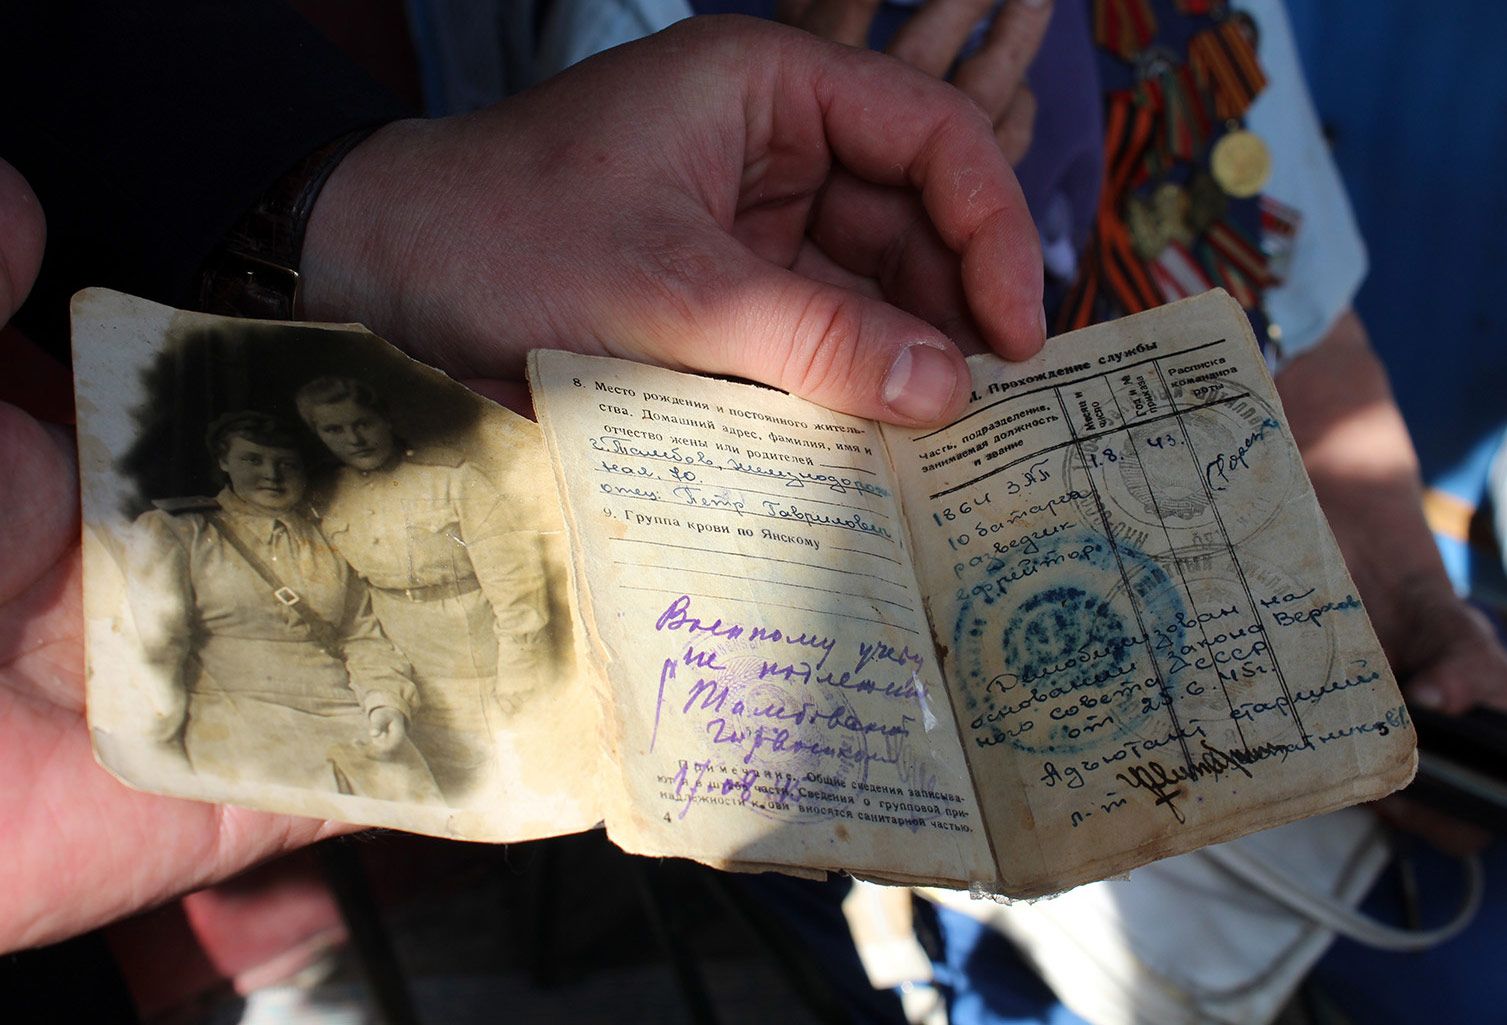 8. Место рождения и постоянного житель-
ства. Домашний адрес, фамилия, имя и
отчество жены или родителей
г. Тамбов, Железнодорож
ная, 70.
отец: Петр Гаврилович
9. Группа крови по Янскому
Военному учету
не подлежит
Тамбовский
17 08 45
Примечание. Общие сведения записыва-
ют в шт. части. Сведения о групповой при-
надлежности крови вносятся санитарной частью.
4
Прохождение службы
Часть, подразделение,
занимаемая должность
и звание
Месяц и
число
Год и №
приказа
Расписка
командира
1864 ЗАП
1.8. 43.
10 батарея
разведчик
ефрейтор
Демобилизован на
основании закона Верхов
ного совета СССР
от 25.6.45г.
Адъютант старший
л-т